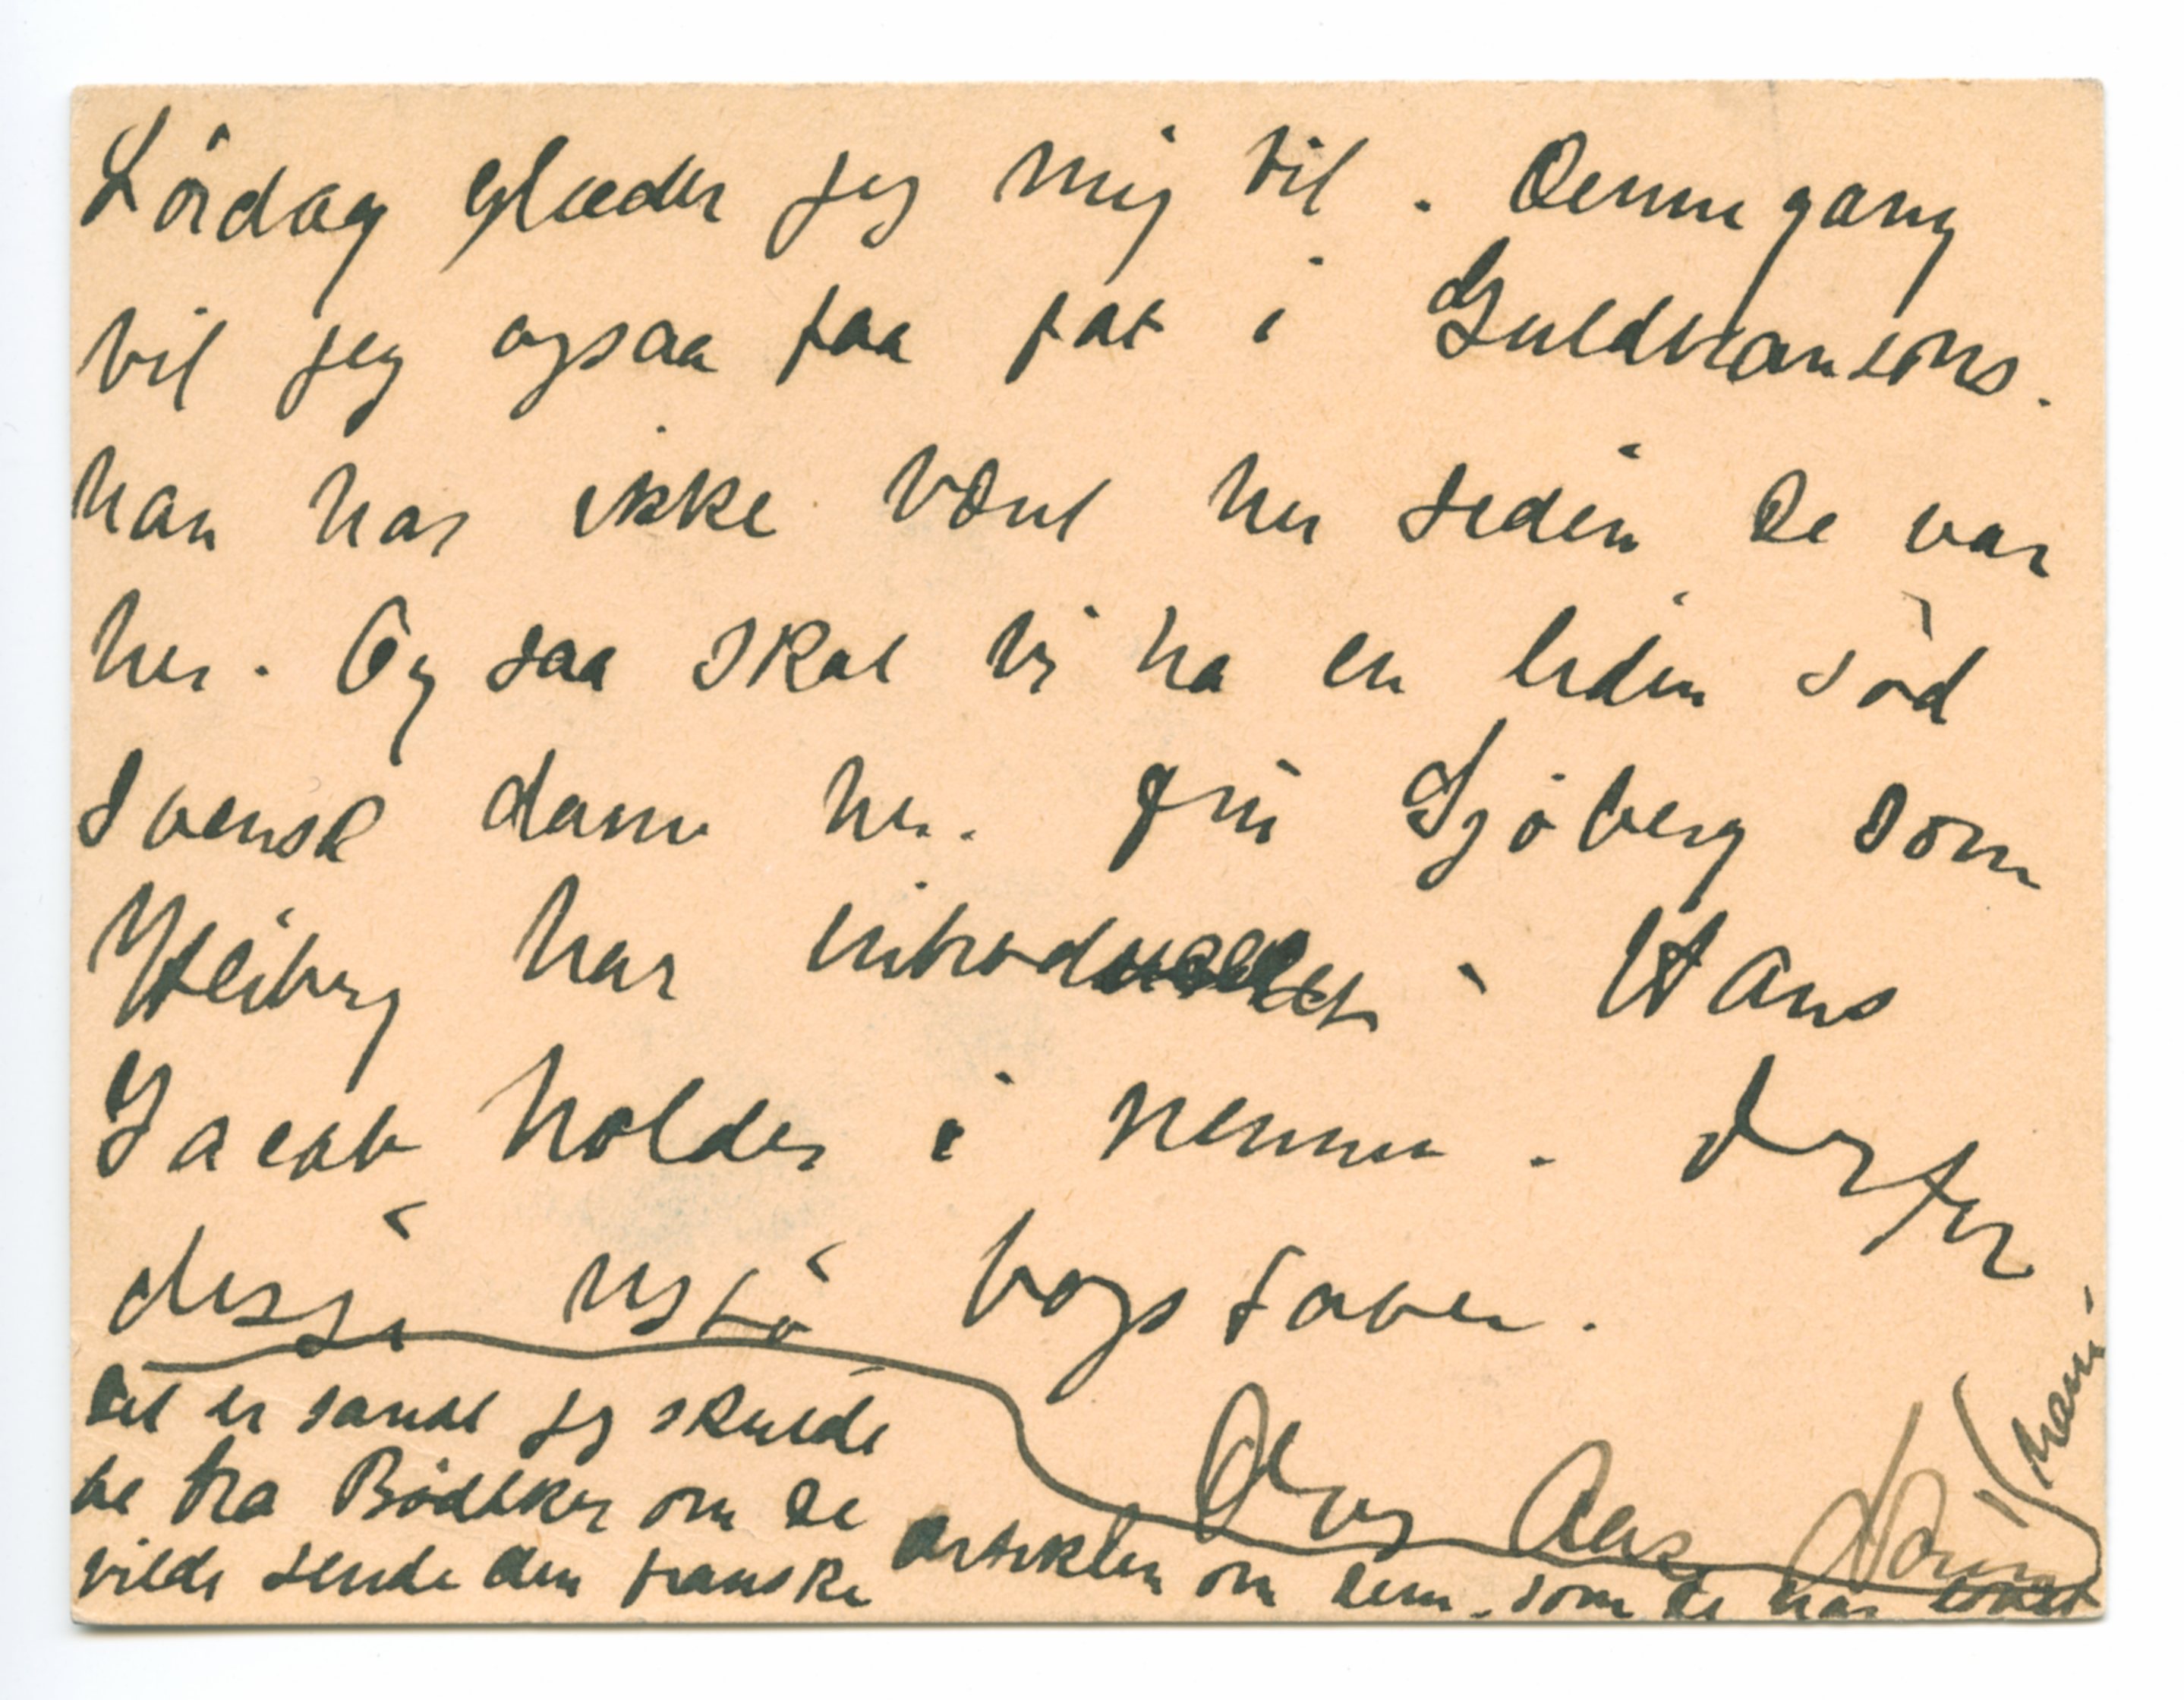 Lördag glæder jeg mig til. Denne gang
vil jeg ogsaa faa fat i Guldbransons.
han har ikke vært her siden De var
her. Og saa skal vi ha en liden söd
svensk dame her. frü Sjöberg som
Heiberg har introduceret. Hans
Jacob holder i pennen. derfor
disse usle bogstaver.
Det er sandt jeg skulde
be fra Bödtker om De
vilde sende den franske artiklen om Dem. som De har lovet
Dag
ham